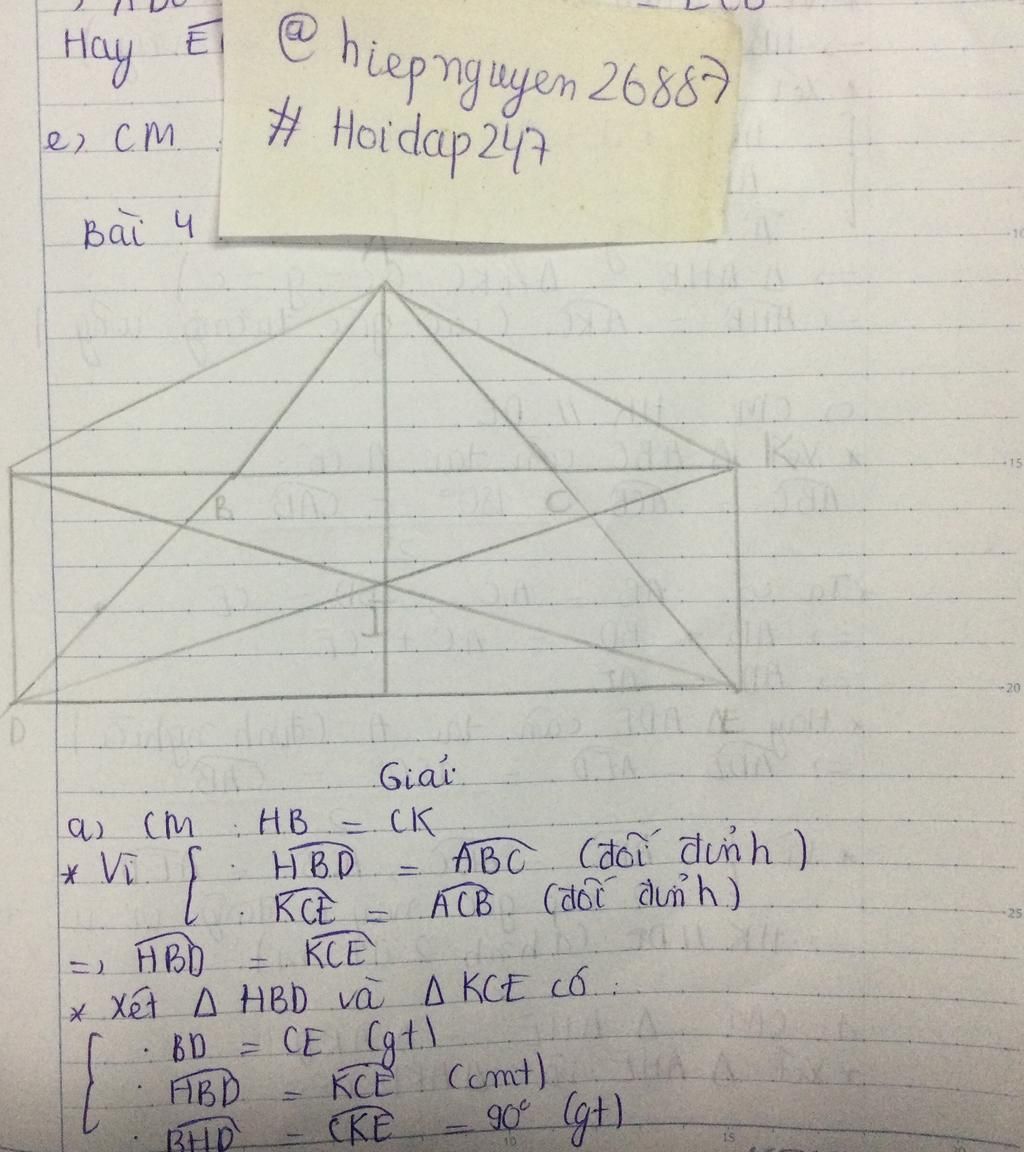 Hay
@ hiepnguyen26887
# Hoidap247
e, CM
Bài 4
B
C
I
D
E
Giải
a, CM : HB = CK
* Vì { . HBD = ABC (đối đỉnh)
. KCE = ACB (đối đỉnh)
=> HBD = KCE
* Xét Δ HBD và Δ KCE có :
. BD = CE (gt)
. HBD = KCE (cmt)
. BHD = CKE = 90° (gt)